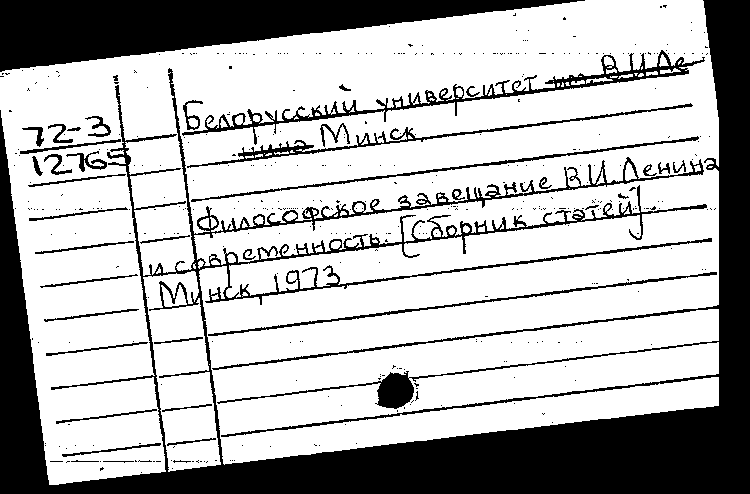 72-3
12765
Белорусский университет им. В.И.Ле-
нина Минск.
Философское завещание В.И. Ленина
и современность. [Сборник статей].
Минск, 1973.